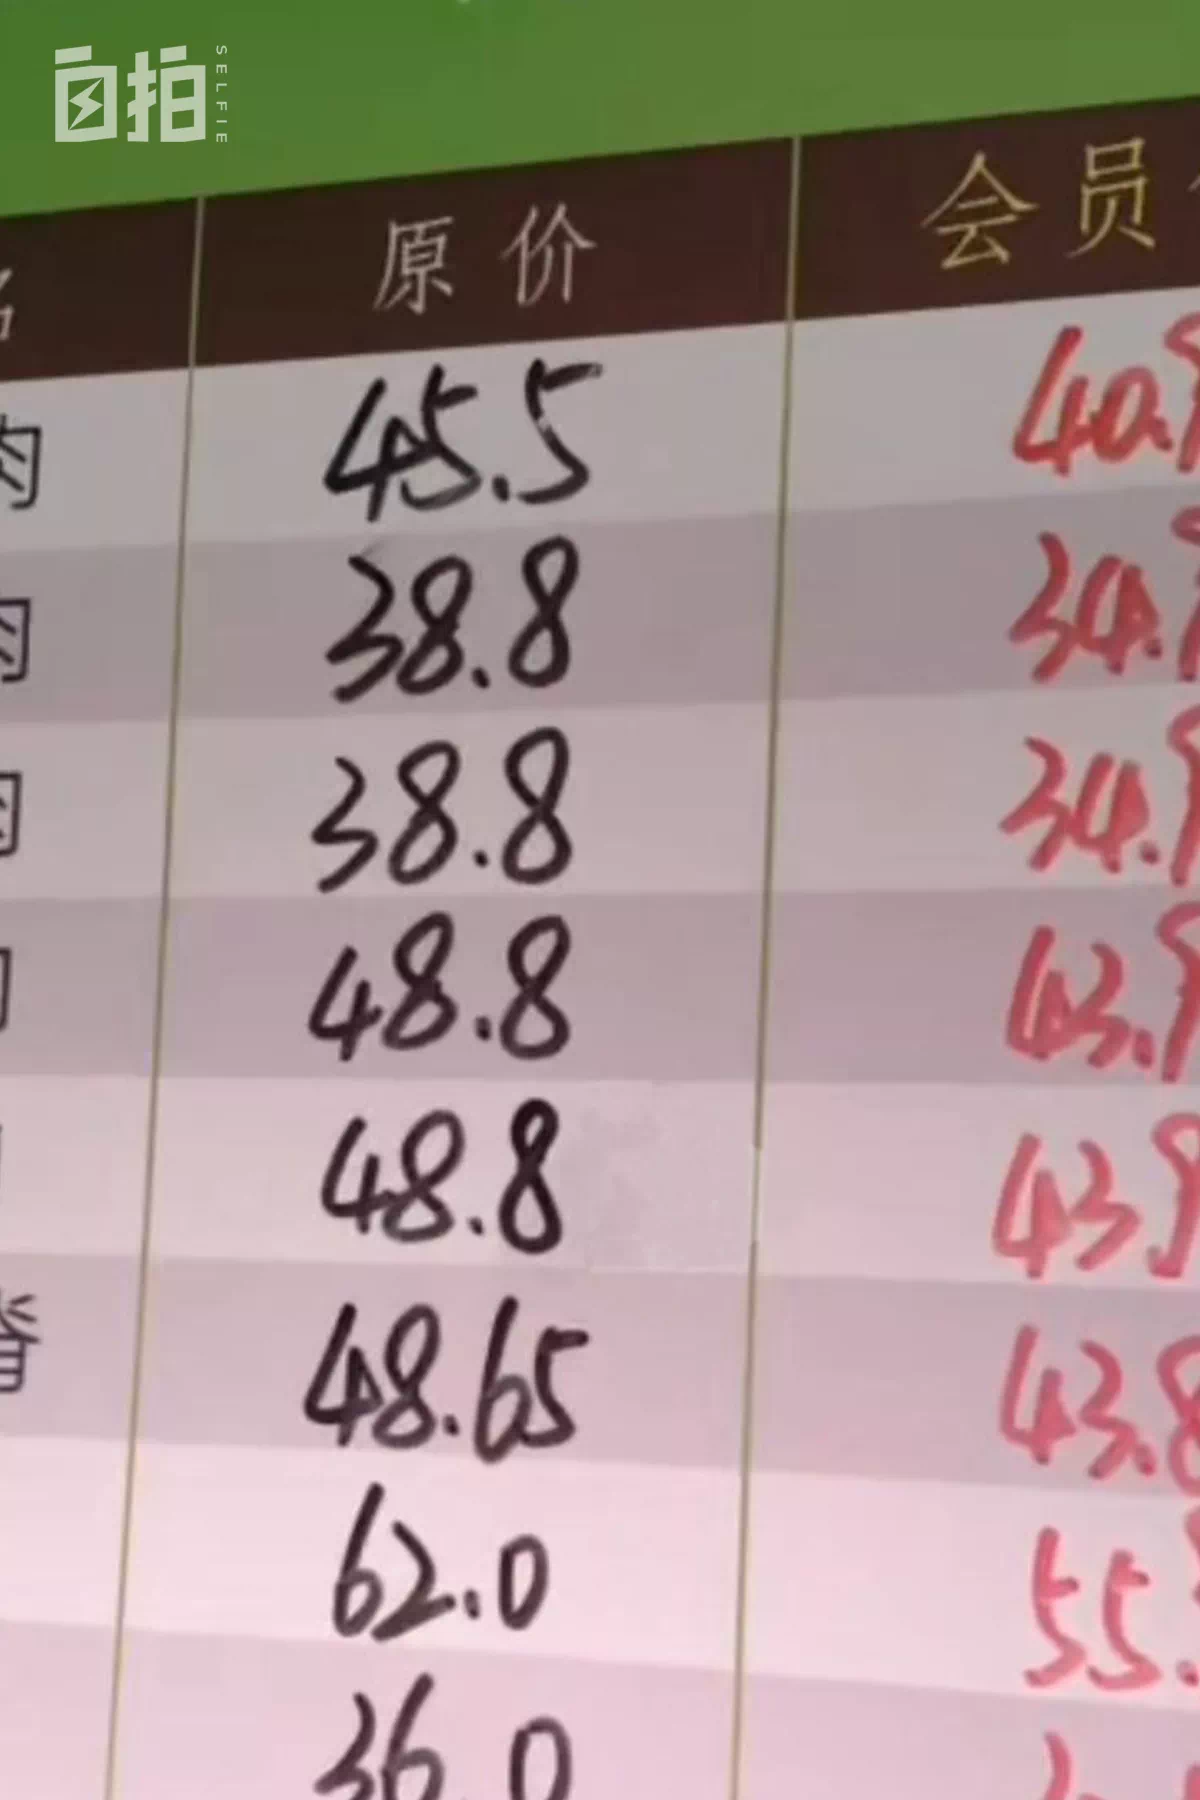 自拍 SELFIE
原价 会员
肉 45.5 40.
肉 38.8 34.
肉 38.8 34.
48.8 43.
48.8 43.
脊 48.65 43.8
62.0 55.
36.0